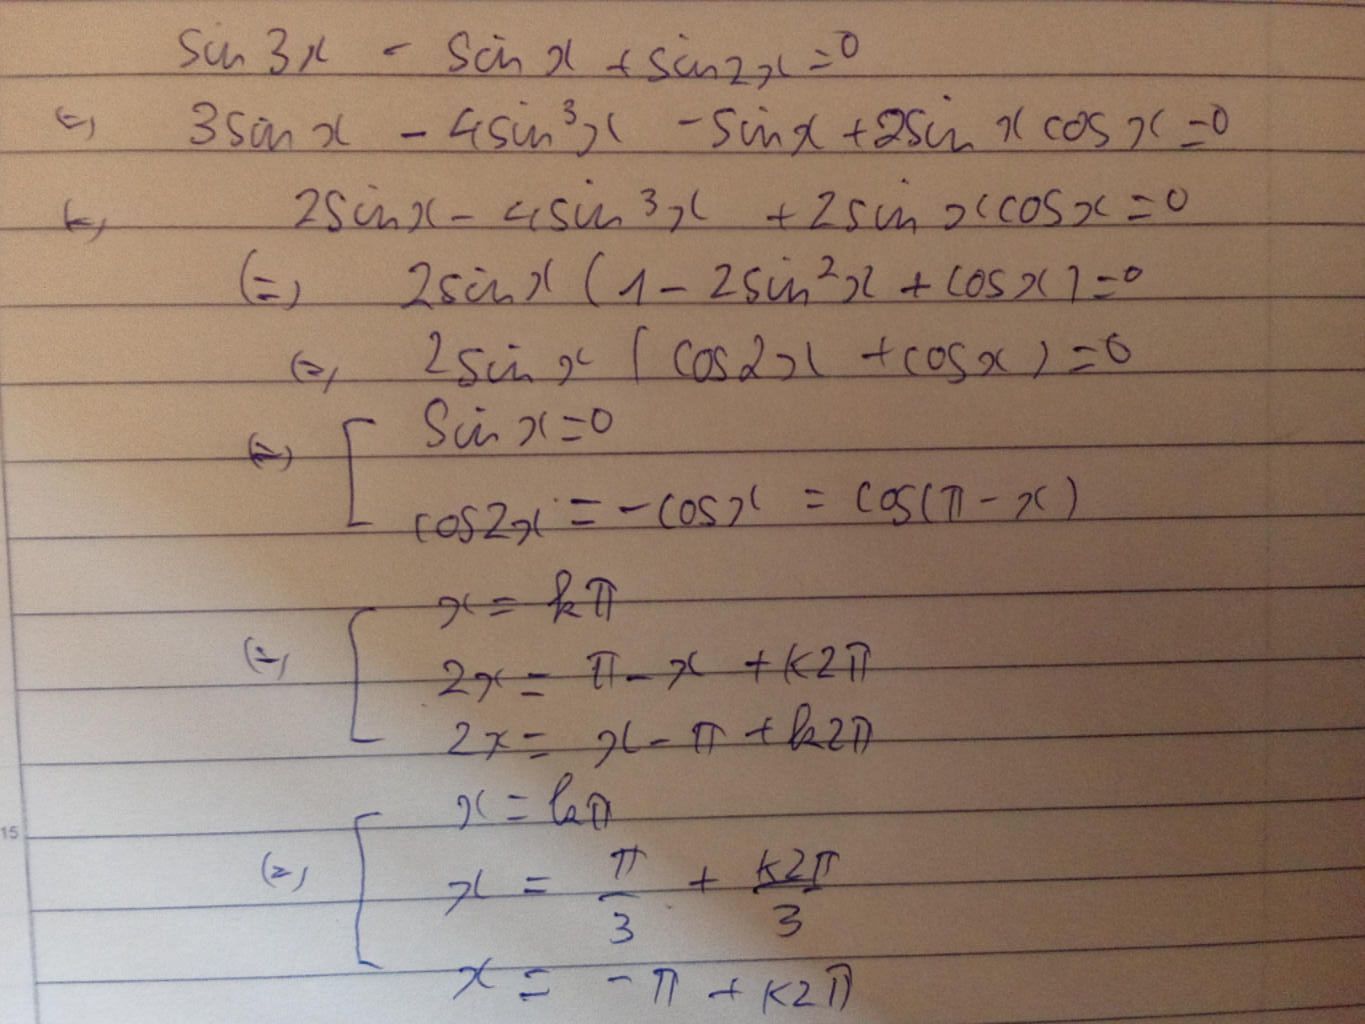 sin3x - sinx + sin2x = 0
(=) 3sinx - 4sin³x - sinx + 2sinxcosx = 0
(=) 2sinx - 4sin³x + 2sinxcosx = 0
(=) 2sinx(1 - 2sin²x + cosx) = 0
(=) 2sinx(cos2x + cosx) = 0
(=) [ sinx = 0
cos2x = -cosx = cos(π - x)
(=) [ x = kπ
2x = π - x + k2π
2x = x - π + k2π
(=) [ x = kπ
x = π/3 + k2π/3
x = -π + k2π
15